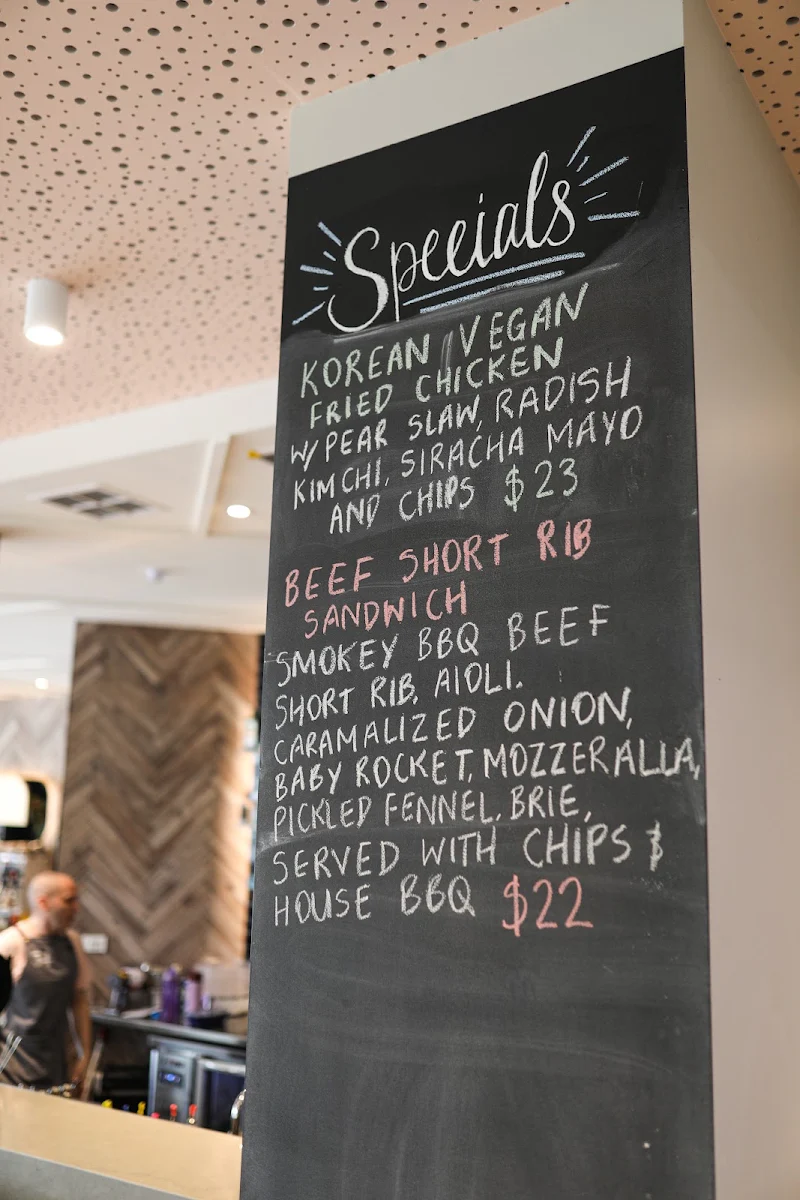 Specials
KOREAN VEGAN
FRIED CHICKEN
W/ PEAR SLAW, RADISH
KIMCHI, SIRACHA MAYO
AND CHIPS $23
BEEF SHORT RIB
SANDWICH
SMOKEY BBQ BEEF
SHORT RIB, AIOLI.
CARAMALIZED ONION,
BABY ROCKET, MOZZERALLA,
PICKLED FENNEL, BRIE,
SERVED WITH CHIPS &
HOUSE BBQ $22